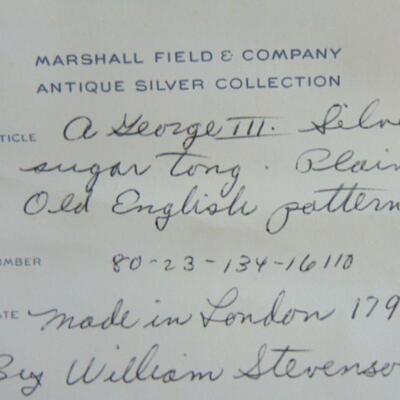 MARSHALL FIELD & COMPANY
ANTIQUE SILVER COLLECTION
TICLE A George III. Silve
sugar tong. Plain
Old English pattern
UMBER 80-23-134-16110
ATE Made in London 179
By William Stevenso